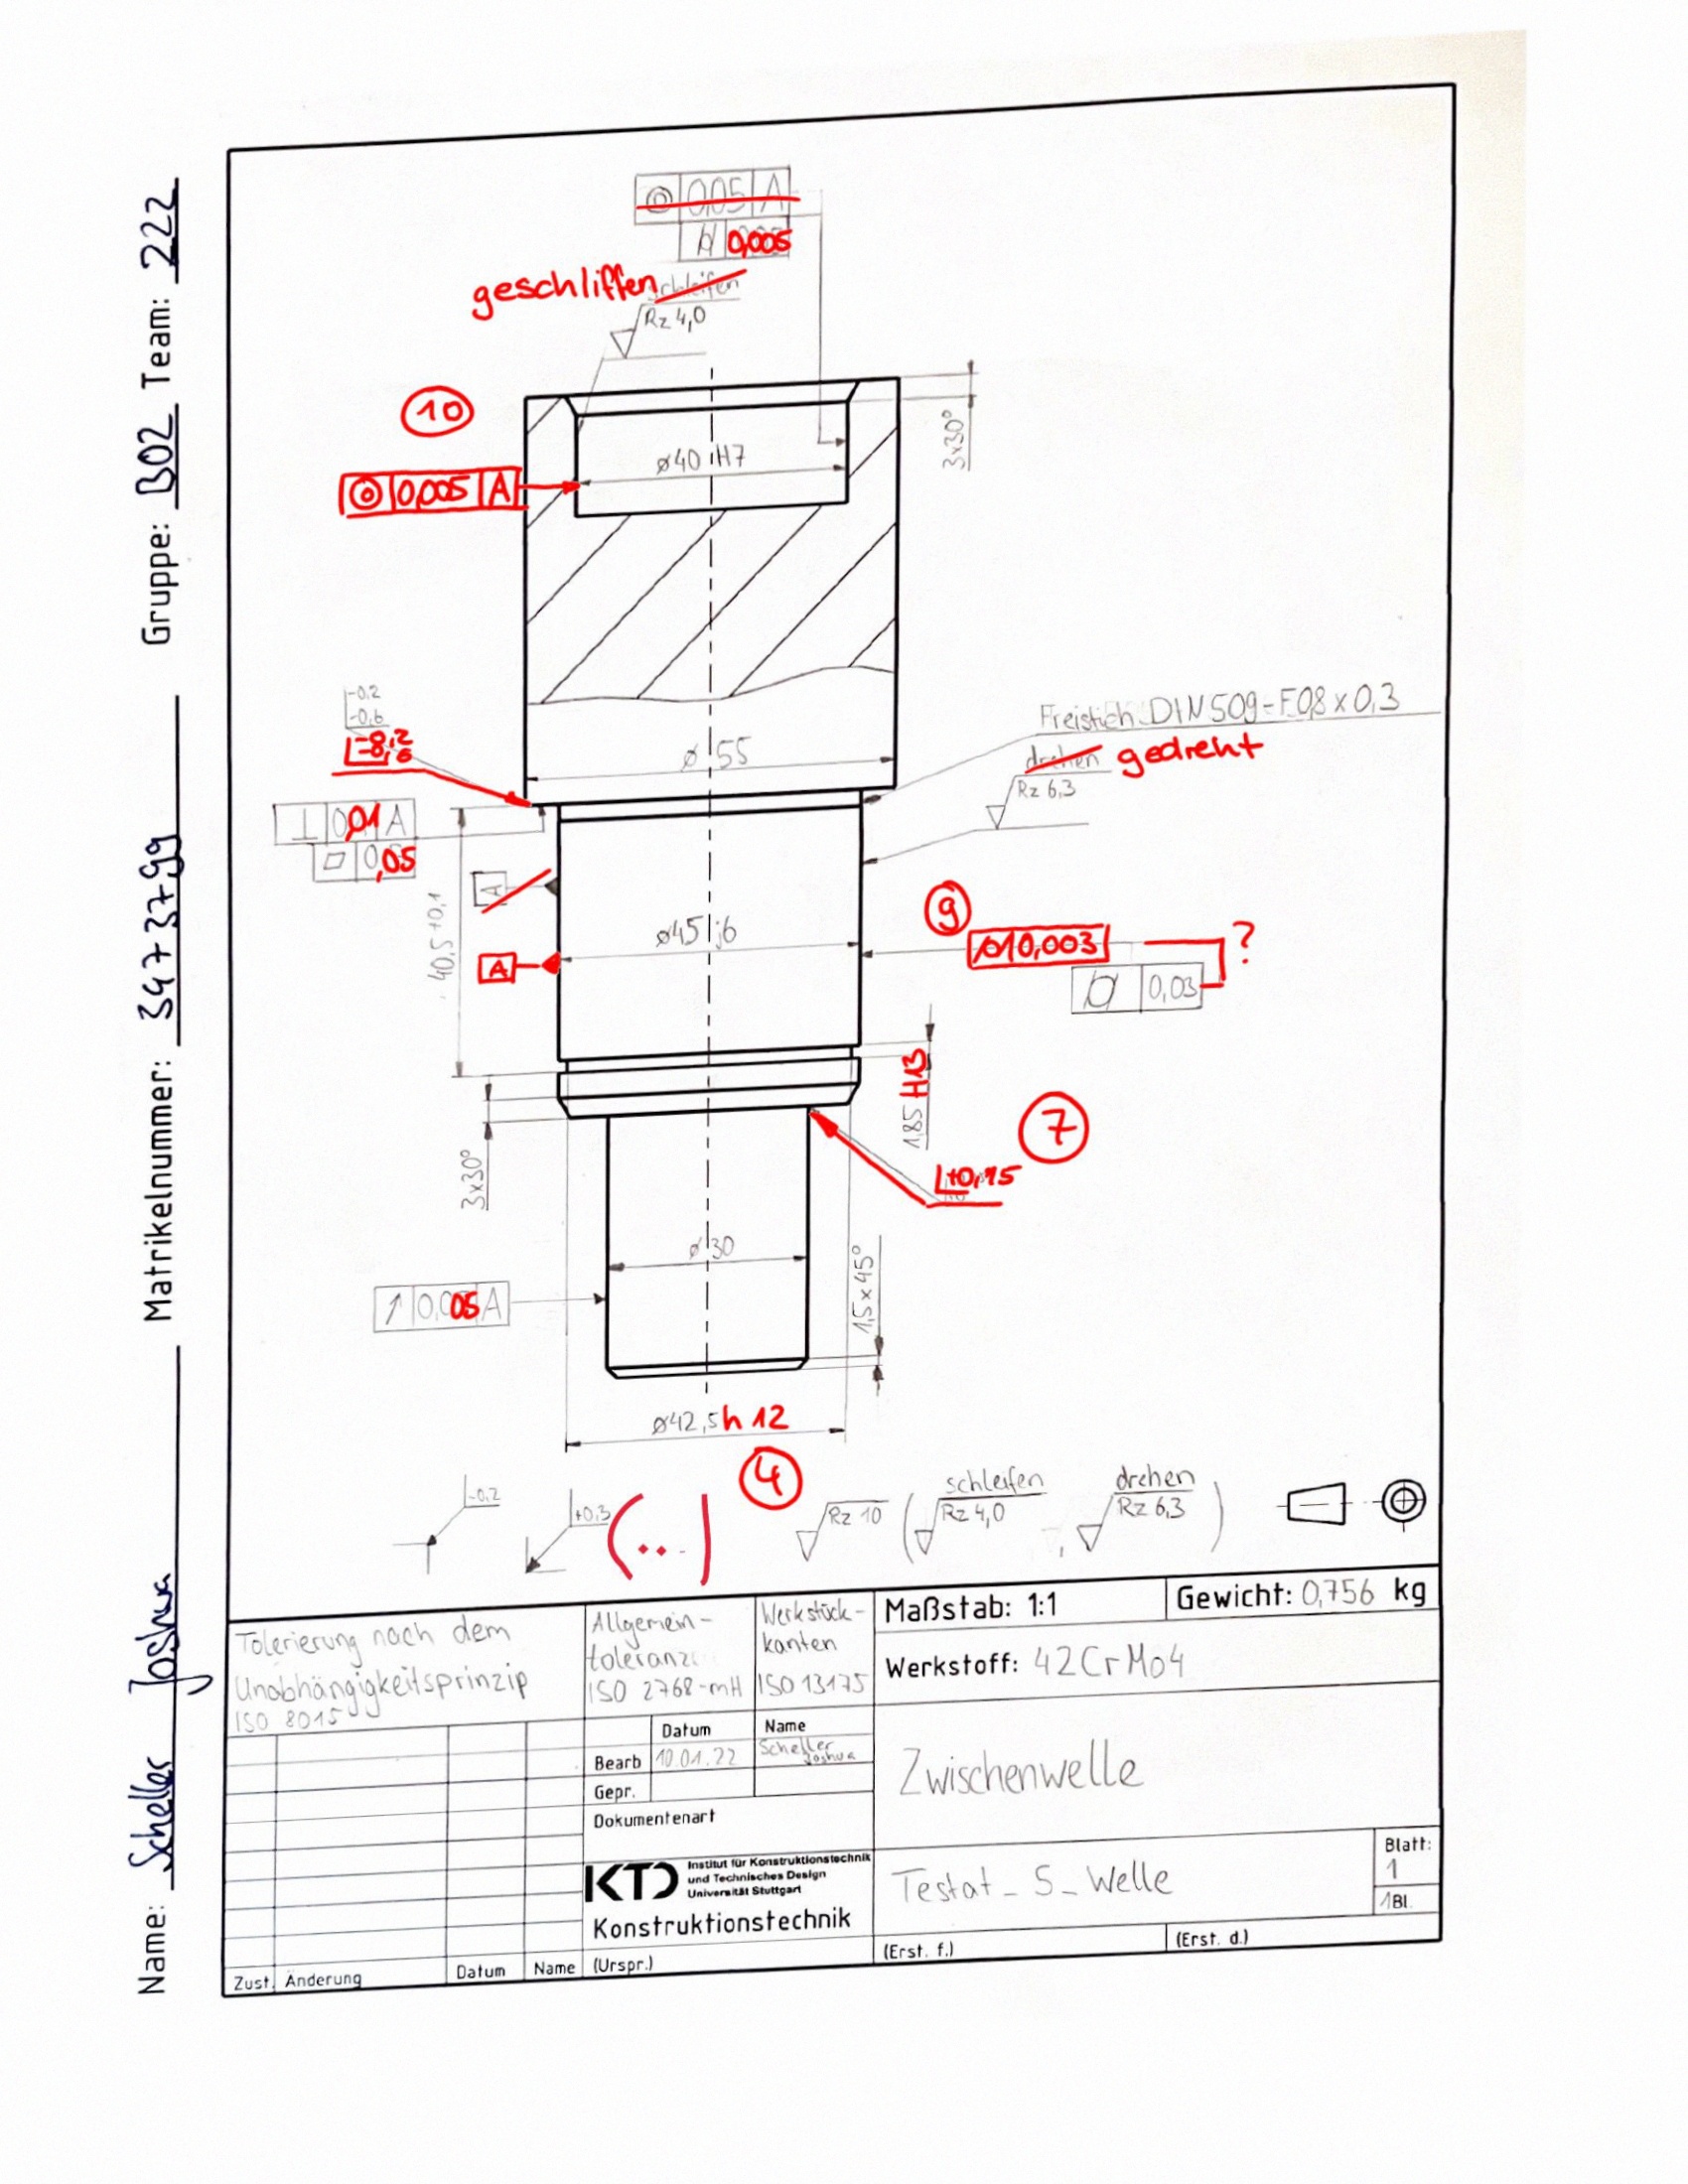 Name: Scheller Joshua Matrikelnummer: 3473799 Gruppe: B02 Team: 222
◎ 0,05 A
⌭ 0,005
geschliffen schleifen
Rz 4,0
10
3x30°
ø40 H7
◎ 0,005 A
-0,2
-0,6
Freistich DIN 509-F0,8 x 0,3
drehen gedreht
Rz 6,3
ø 55
⊥ 0,01 A
⏥ 0,05
A
40,5+0,1
ø45 j6
9
0,003
?
A
⌭ 0,03
1,85 H13
7
+0,15
3x30°
ø 30
1,5x45°
↗ 0,005 A
ø42,5 h 12
4
-0,2
+0,3
(...)
Rz 10 ( schleifen Rz 4,0 , drehen Rz 6,3 )
Tolerierung nach dem
Unabhängigkeitsprinzip
ISO 8015
Allgemein-
toleranz
ISO 2768-mH
Werkstück-
kanten
ISO 13175
Maßstab: 1:1
Gewicht: 0,756 kg
Werkstoff: 42CrMo4
Datum Name
Bearb 10.01.22 Scheller Joshua
Gepr.
Dokumentenart
Zwischenwelle
KTD Institut für Konstruktionstechnik
und Technisches Design
Universität Stuttgart
Konstruktionstechnik
Testat_S_Welle
Blatt:
1
1Bl.
Zust. Änderung Datum Name (Urspr.)
(Erst. f.)
(Erst. d.)